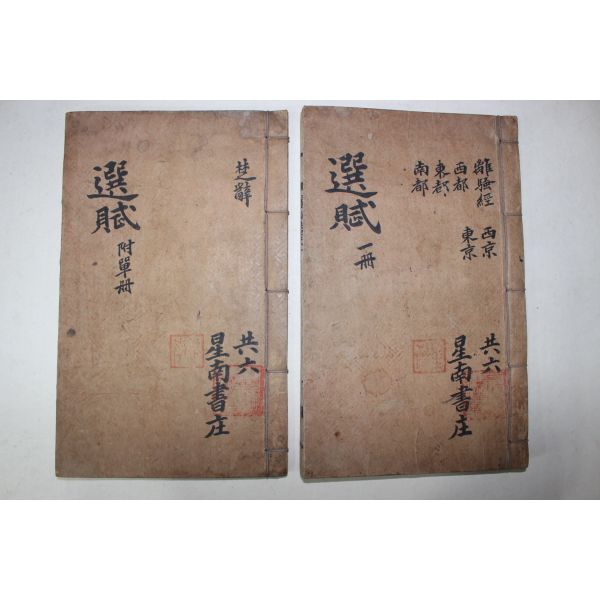 離騷經 西京
西都 東京
東都
南都
選賦 一冊
共六
星南書庄
楚辭
選賦 附單冊
共六
星南書庄